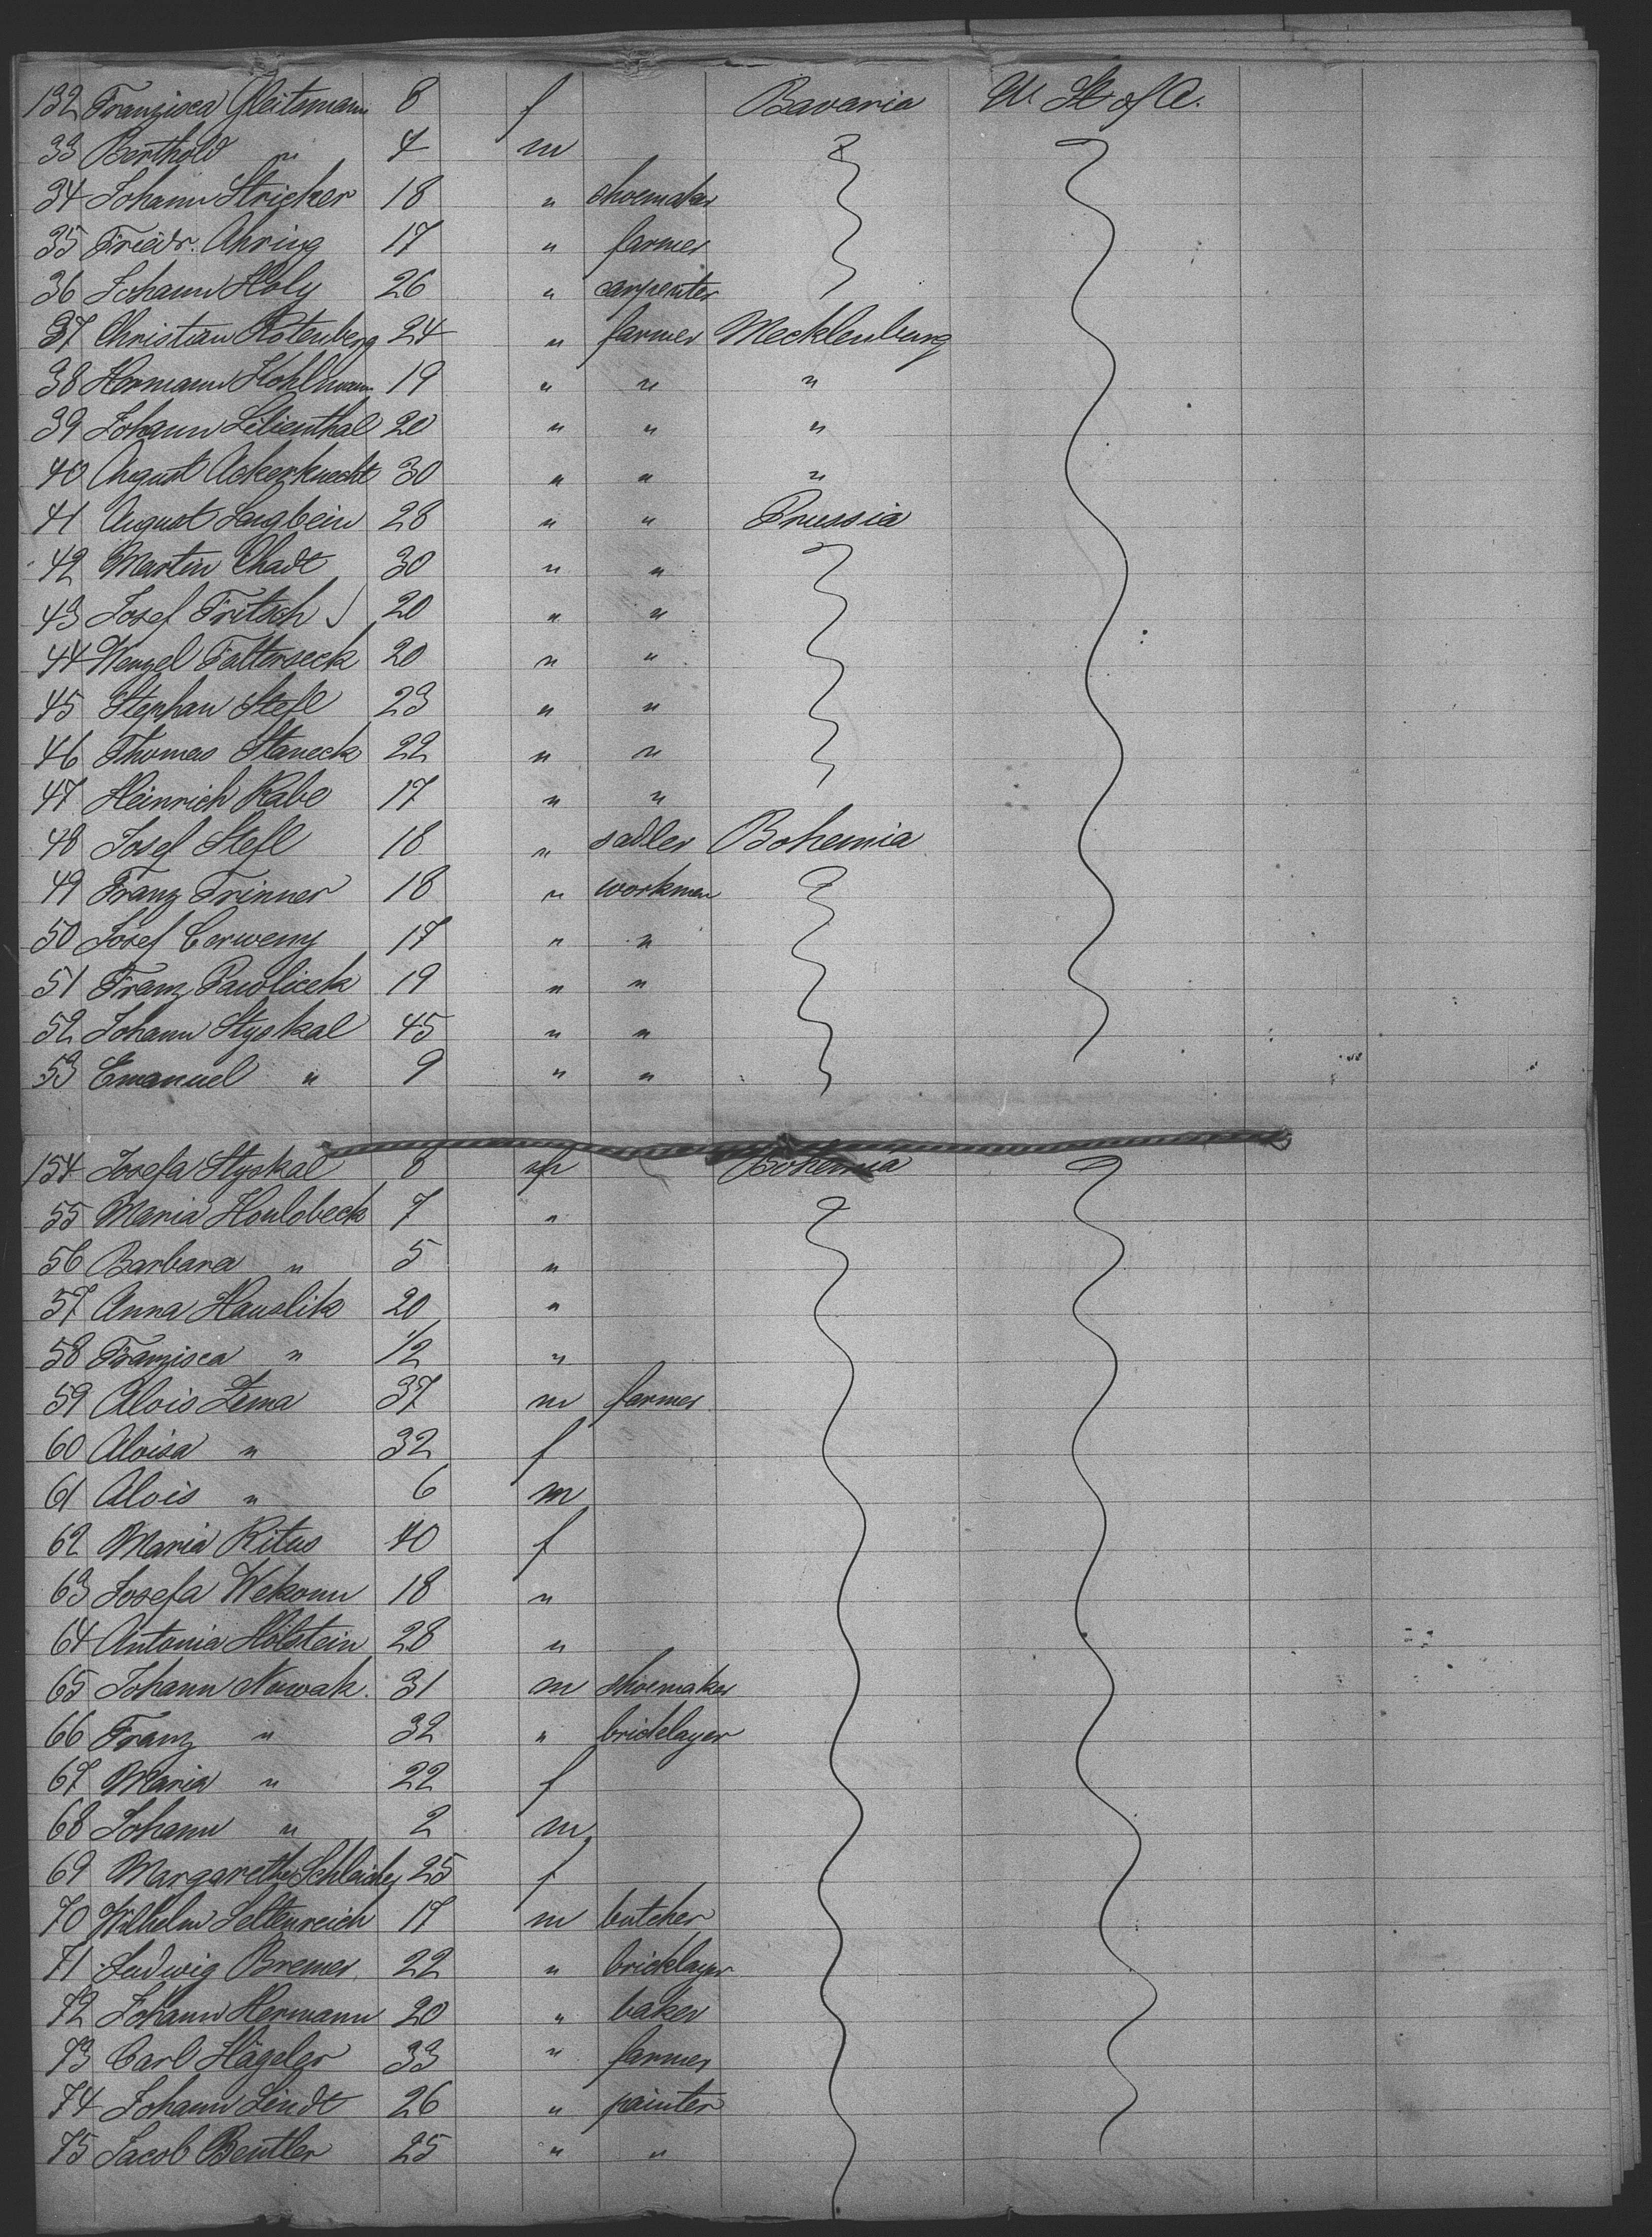 132 Franzisca Gleitsmann 8 f Bavaria U. St. of A.
33 Berthold " 4 m
34 Johann Stricker 18 " shoemaker
35 Friedr. Ahring 17 " farmer
36 Johann Holy 26 " carpenter
37 Christian Rotenberg 24 " farmer Mecklenburg
38 Hermann Kohlmann 19 " " "
39 Johann Lilienthal 20 " " "
40 August Ackerknecht 30 " " "
41 August Langbein 28 " " Prussia
42 Martin Chadt 30 " "
43 Josef Fritsch 20 " "
44 Wenzel Falterseck 20 " "
45 Stephan Stefl 23 " "
46 Thomas Staneck 22 " "
47 Heinrich Rabe 17 " "
48 Josef Stefl 18 " sadler Bohemia
49 Franz Trinner 18 " workmen
50 Josef Cerweny 17 " "
51 Franz Pawlicek 19 " "
52 Johann Styskal 45 " "
53 Emanuel " 9 " "
154 Josefa Styskal 8 f Bohemia
55 Maria Houlobeck 7 "
56 Barbara " 5 "
57 Anna Hauslik 20 "
58 Franzisca " 1/2 "
59 Alois Zema 37 m farmer
60 Aloisa " 32 f
61 Alois " 6 m
62 Maria Ritus 40 f
63 Josefa Wekoun 18 "
64 Antonia Holstein 28 "
65 Johann Nowak. 31 m shoemaker
66 Franz " 32 " bricklayer
67 Maria " 22 f
68 Johann " 2 m
69 Margarethe Schleicher 25 f
70 Wilhelm Seltenreich 17 m butcher
71 Ludwig Bremer. 22 " bricklayer
72 Johann Hermann 20 " baker
73 Carl Hägeler 33 " farmer
74 Johann Lindt 26 " painter
75 Jacob Beutler 25 " "